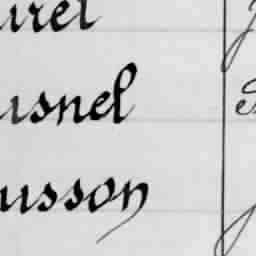 urel
usnel
usson